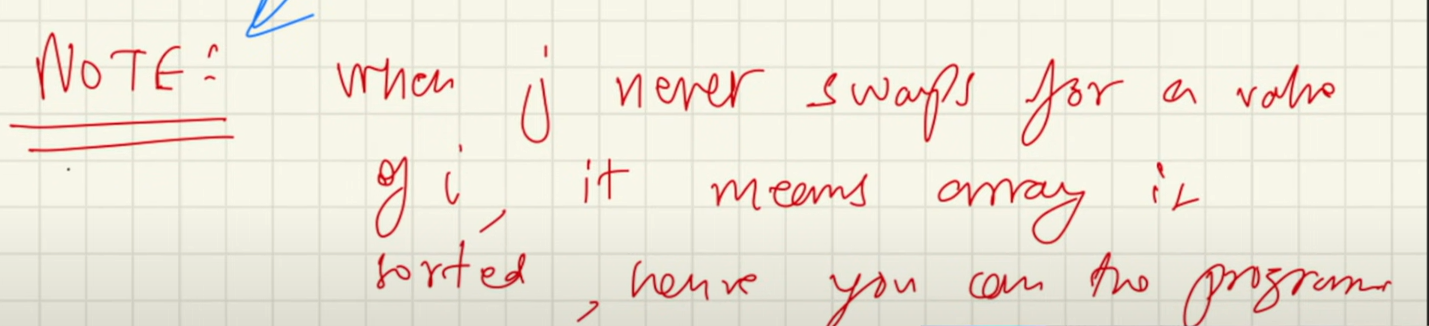 NOTE: when j never swaps for a value
of i, it means array is
sorted, hence you can the program